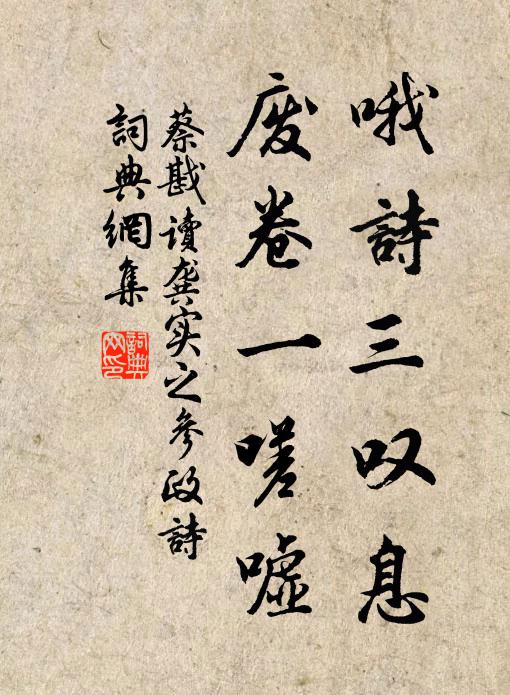 哦詩三叹息
废卷一嗟嘘
蔡戡读龚实之参政詩
詞典網集
詞典网印